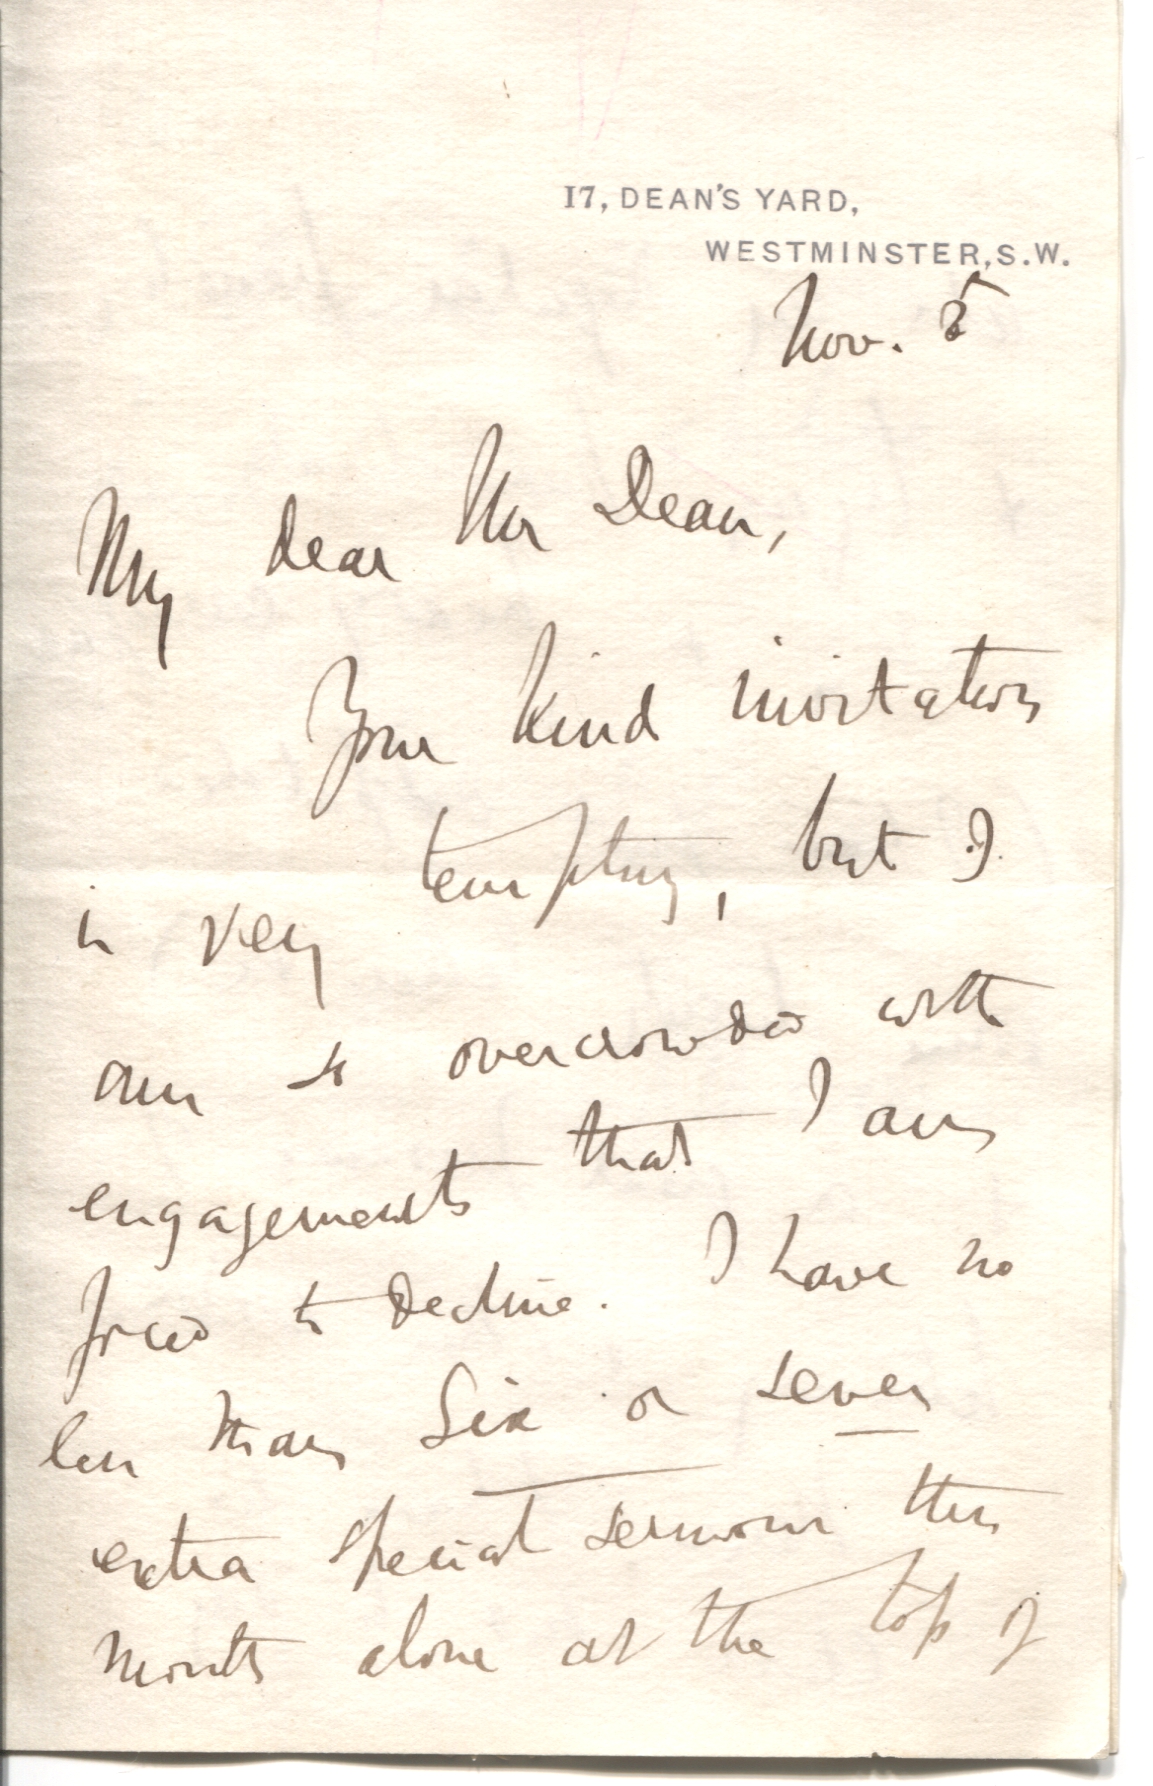 17, DEAN'S YARD,
WESTMINSTER, S.W.
Nov. 5
My dear Mr Dean,
Your kind invitation
is very tempting, but I
am so overcrowded with
engagements that I am
forced to decline. I have no
less than six or seven
extra special sermons this
month alone at the top of